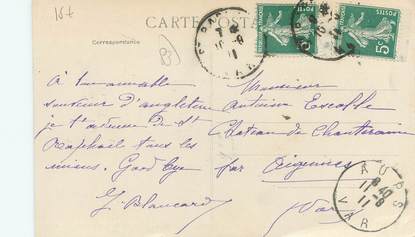 15 f
CARTE POSTALE
Correspondance
Monsieur
Antoine Escoffle
Château de Chanterain
par Aiguines
Var
A
souteneur d'angleterre
je t'adresse de St
Raphaël tous les
miens. Good bye
J. Blancard
POSTES
5c
POSTES
5c
AUPS
11-8
11
VAR